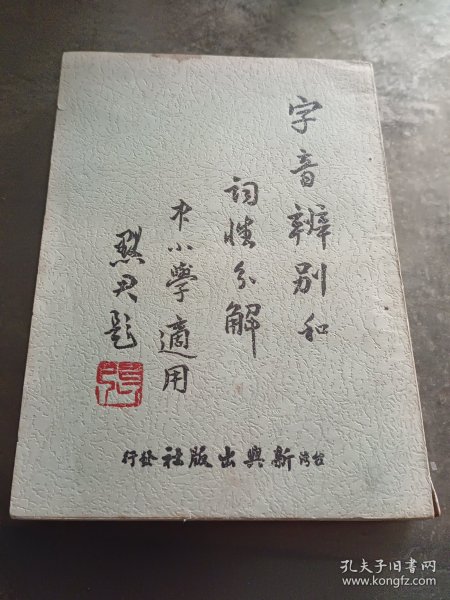 字音辨別和
詞性分解
中小學適用
題
台湾新興出版社發行
孔夫子旧书网
www.kongfz.com